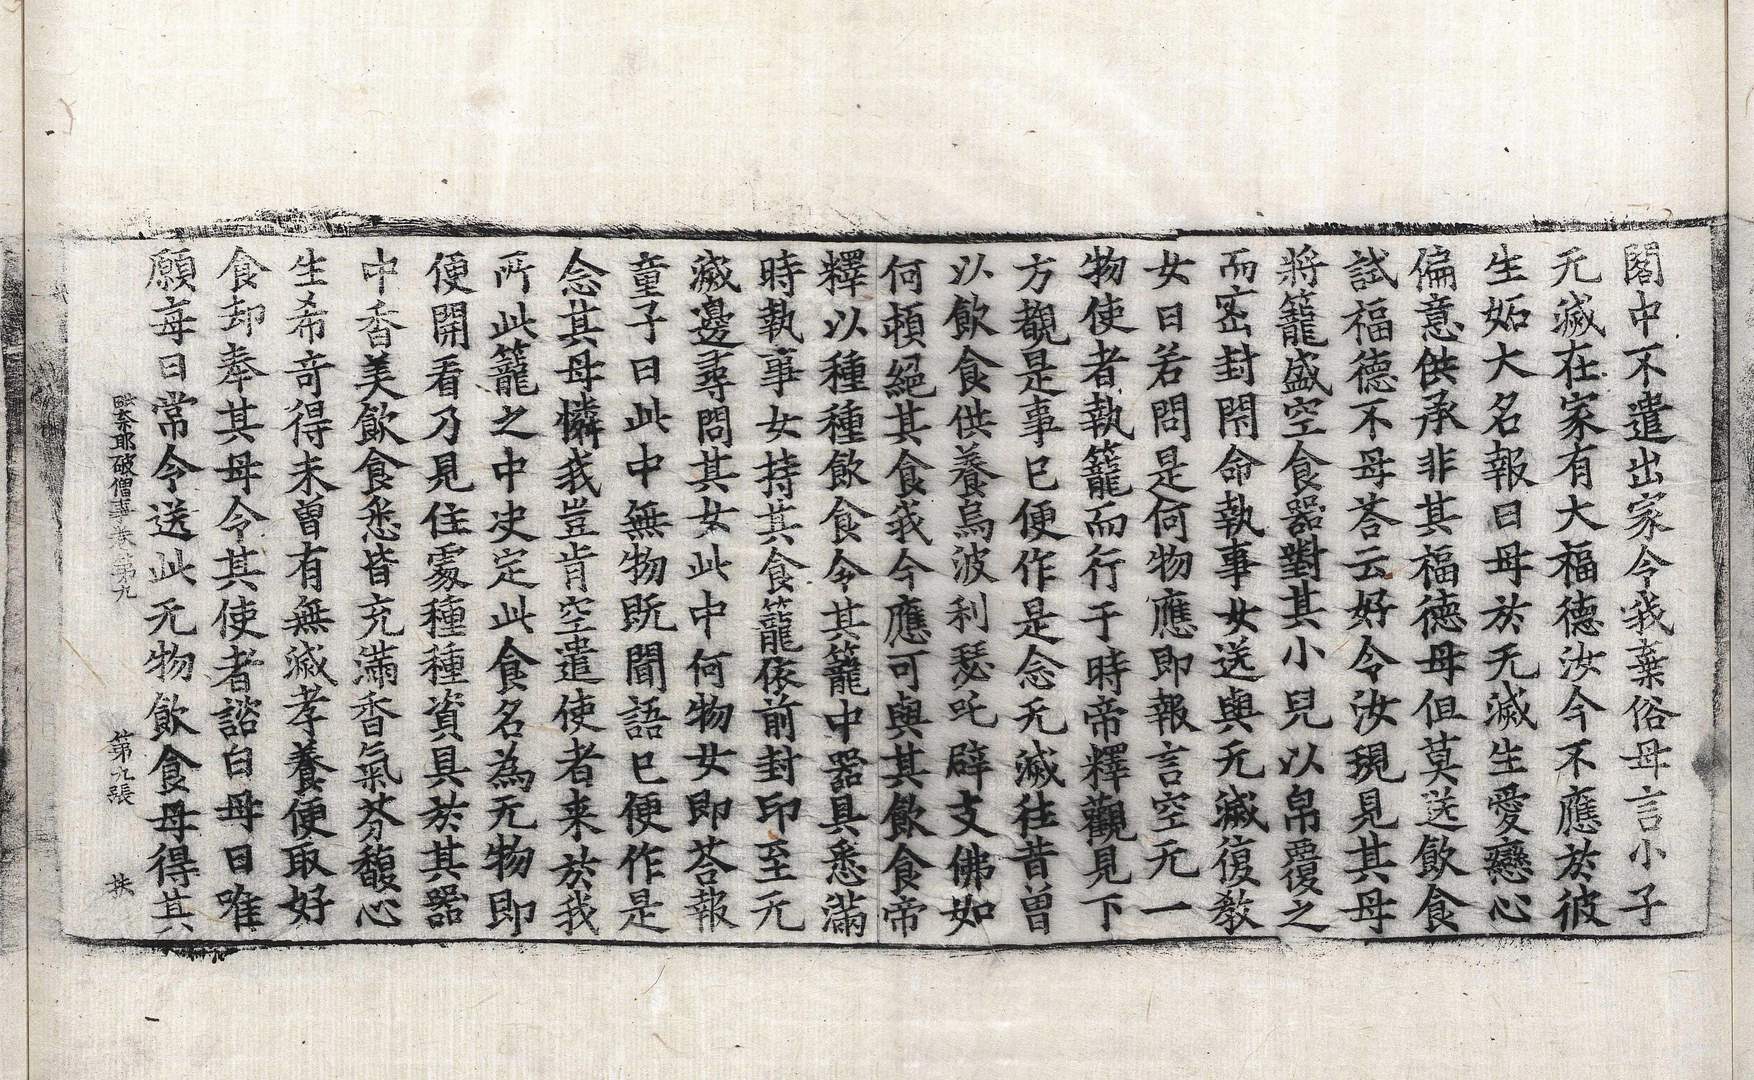 閣中不遣出家今我棄俗母言小子
无滅在家有大福德汝今不應於彼
生妬大名報曰母於无滅生愛戀心
偏意供承非其福德母但莫送飲食
試福德不母荅云好令汝現見其母
將籠盛空食器對其小兒以帛覆之
而密封閇命執事女送與无滅復教
女曰若問是何物應即報言空无一
物使者執籠而行于時帝釋觀見下
方覩是事已便作是念无滅往昔曾
以飲食供養烏波利瑟吒辟支佛如
何頓絕其食我今應可與其飲食帝
釋以種種飲食令其籠中器具悉滿
時執事女持其食籠依前封印至无
滅邊尋問其女此中何物女即荅報
童子曰此中無物既聞語已便作是
念其母憐我豈肯空遣使者来於我
所此籠之中决定此食名為无物即
便開看乃見住處種種資具於其器
中香美飲食悉皆充滿香氣芬馥心
生希奇得未曾有無滅孝養便取好
食却奉其母令其使者諮白母曰唯
願毎日常令送此无物飲食母得其
毗奈耶破僧事卷第九　第九張　扶